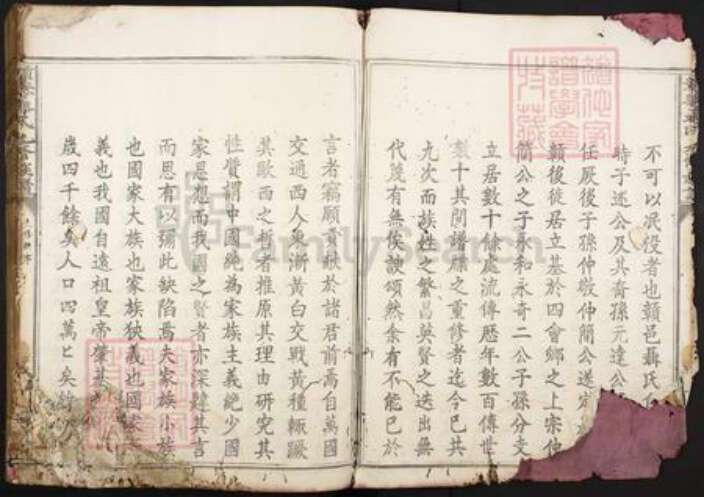 不可以泯役者也贛邑聶氏
時子述公及其裔孫元達公
任厥後子孫仲敬仲簡公遂定
贛後徙居立基於四會鄉之上宗
簡公之子永和永奇二公子孫分支
立居數十餘處流傳歷年數百傳世
數十其間譜牒之重修者迄今已共
九次而族姓之繁昌英賢之迭出無
代蔑有無俟諛頌然余有不能已於
言者竊願貢獻於諸君前焉自萬國
交通西人東漸黃白交戰黃種輒蹶
歐西之哲者推原其理由研究其
性質謂中國純為家族主義絶少國
家思想而我國之賢者亦深韙其言
而思有以彌此缺陷焉夫家族小族
也國家大族也家族狹義也國家
義也我國自遠祖皇帝肇基
歲四千餘矣人口四萬七矣
FamilySearch